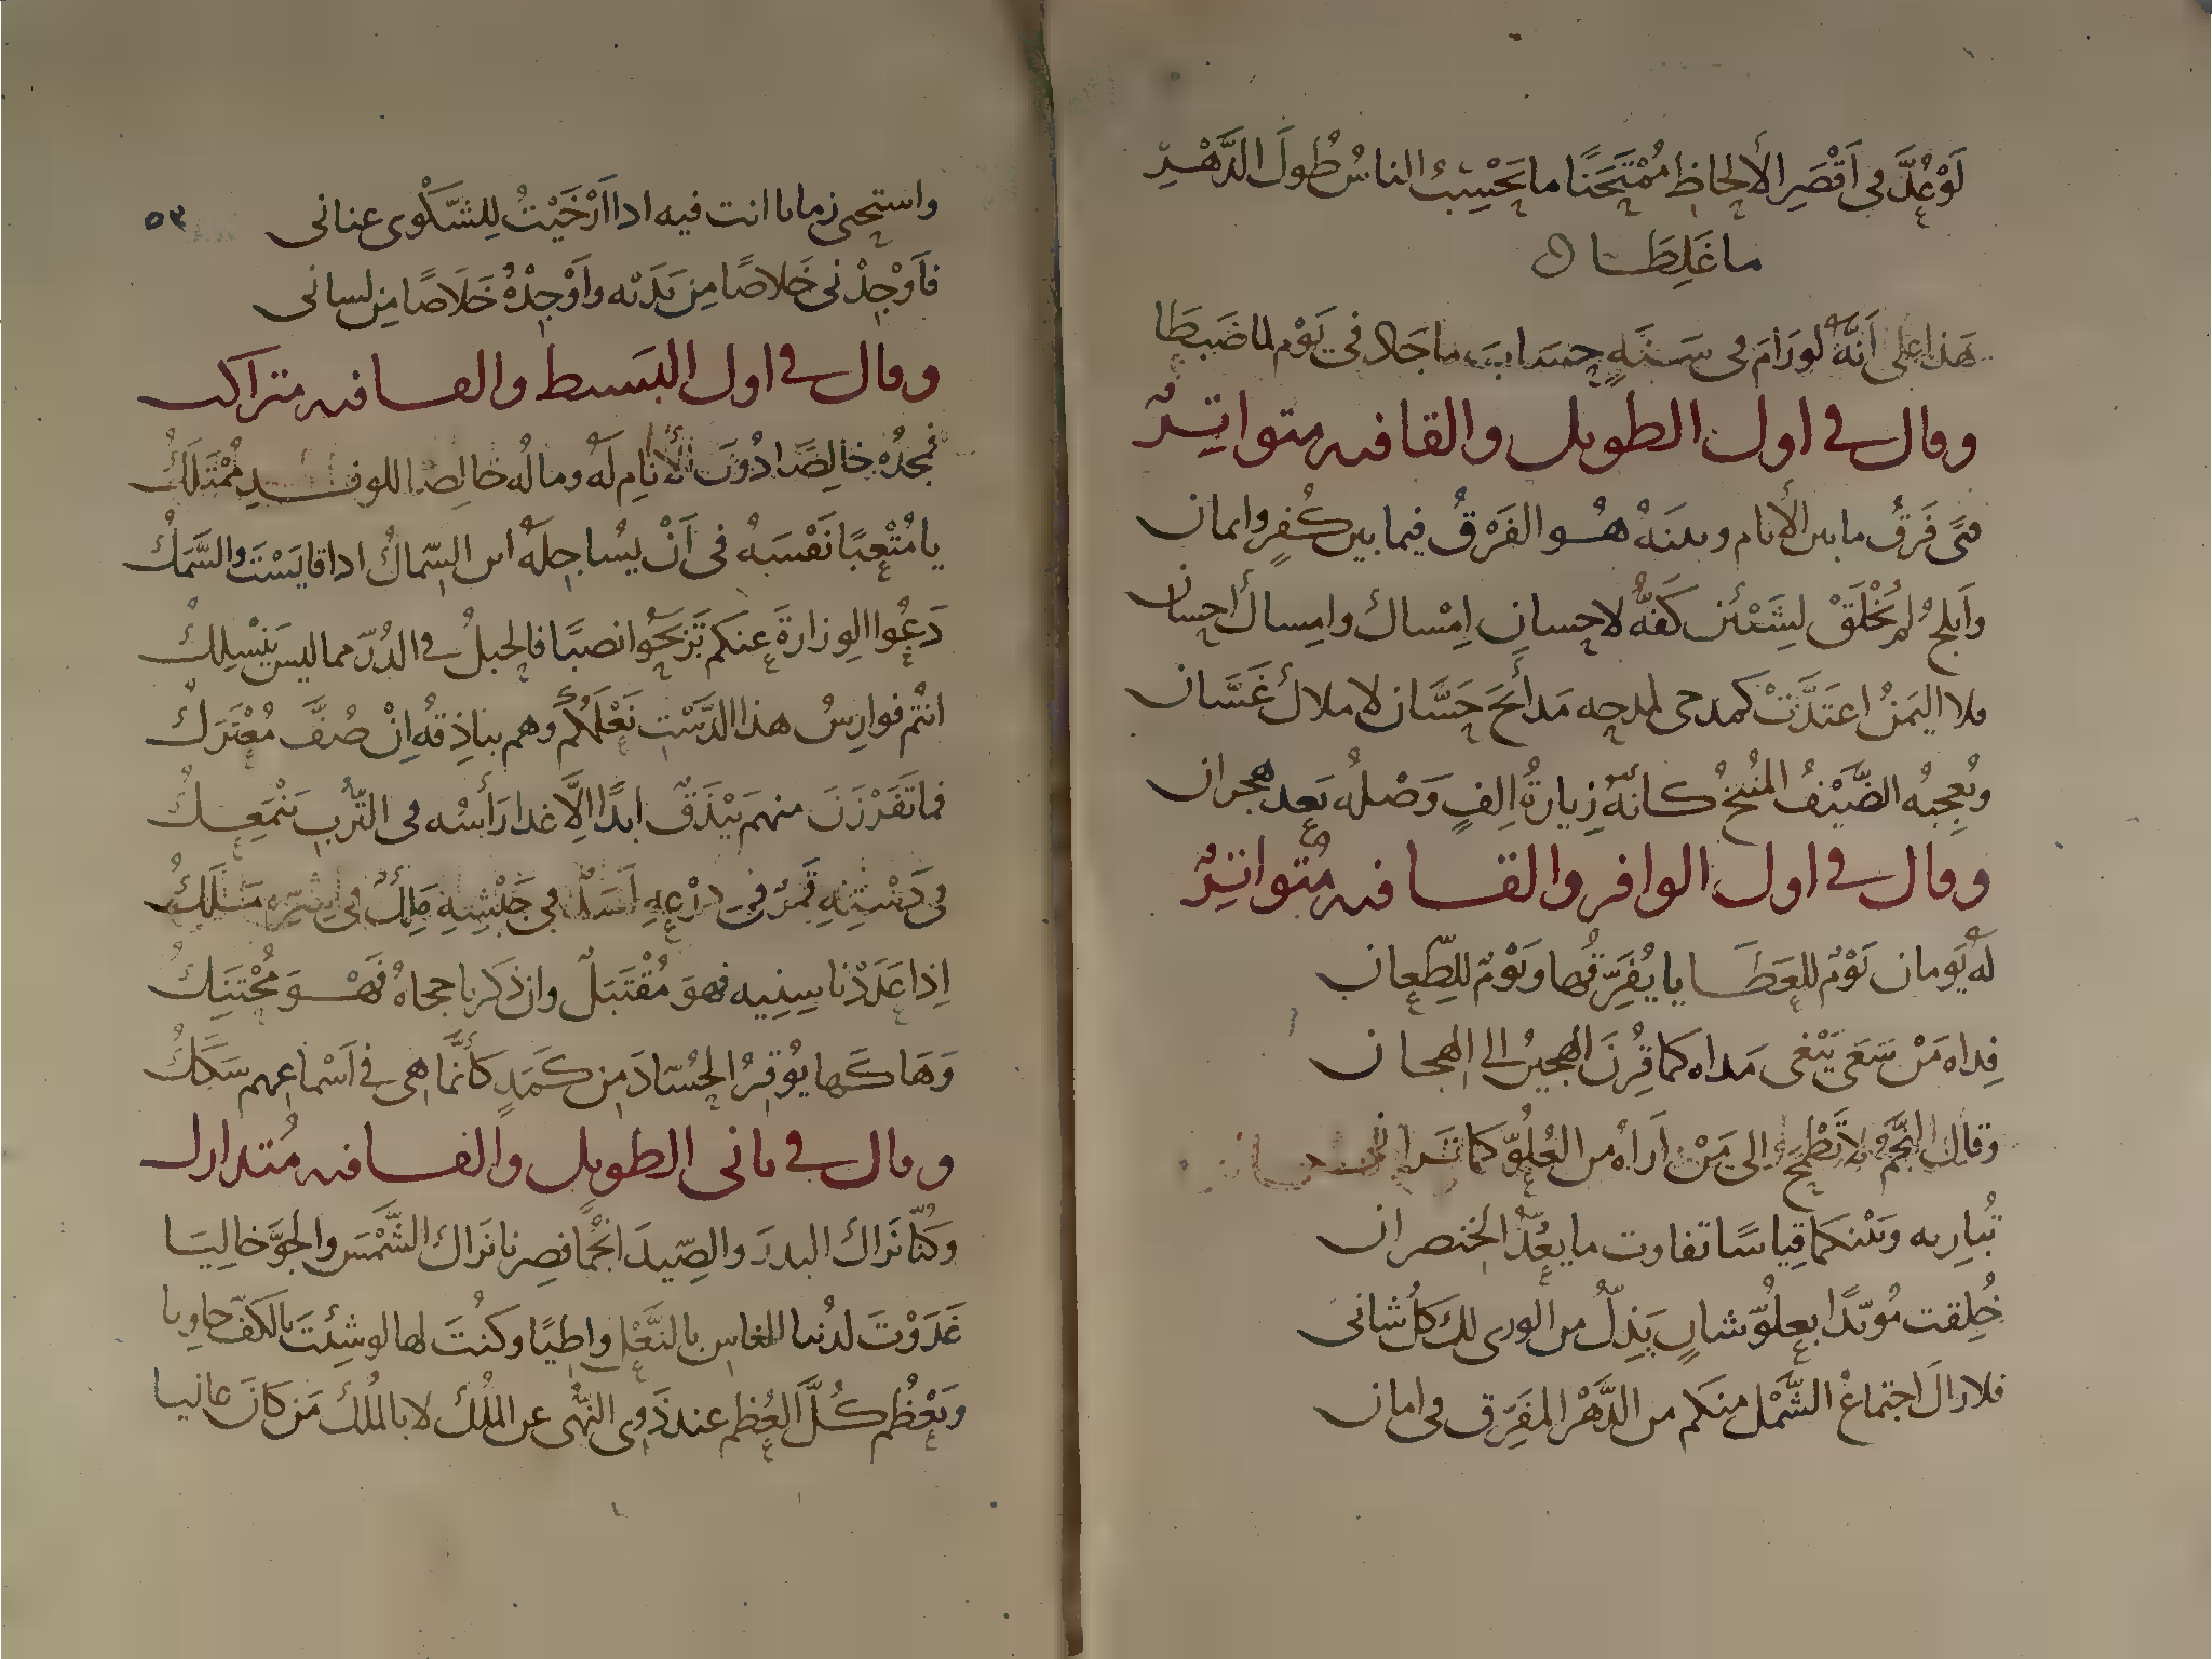 لَوْ عُدَّ فى اَقْصَرِ الألحاظِ مُمْتَحَنًا ما يَحْسِبُ الناسُ طُولَ الدَّهْرِ
ما غَلِطَا
هَذا على اَنَّهُ لو رَامَ فى سَنَةٍ حِسَابَ ما جَاد فى يَوْم لما ضَبَطَا
وقال فى اول الطويل والقافيه متواتِرٌ
فتًى فَرَقُ ما بين الأنام وبينَهُ هُو الفَرْقُ فيما بين كُفرٍ وايمان
وَاَبلجُ لم تُخْلَقْ لِشَيْئَين كَفُّهُ لاحِسانِ اِمْساك وامِساك احِسان
فلا اليَمَنُ اعتَدَّتْ كمدحى لمدحِه مَدائحَ حَسَّان لاملاك غَسَّان
ويُعجِبُه الضَّيْفُ المُنيخُ كانَّهُ زِيارةُ اِلفٍ وَصْلُه بَعد هجران
وقال فى اول الوافر والقافيه مُتواتِرٌ
لَه يَومان يَوْمٌ للعَطَايا يُفَرِّقُها ويَوْمٌ للطِّعان
فِداه مَنْ سَعَى يَبْغى مَداه كما قُرِنَ الهَجيرُ الى الهجان
وقال النَّجْمُ لا تَطْمَحْ الى مَنْ اَراهُ من العُلُوّ كما تَرانى
تُبارِيه وبَيْنكما قِياسًا تفاوت ما يعُدُّ الخنصران
خُلِقت مُوَيَّدًا بعلُوّ شانٍ يَذِلُّ من الورى لك كلُّ شانى
فلا زالَ اجتماعُ الشَّمْل منكم من الدَّهْر المفَرِّق فى امان
٥٣
واستحيى زمانا انت فيه اذا اَرْخَيْتُ لِلشَّكْوى عنانى
فاَوْجِدْنى خَلاصًا مِن يَدَيْه واَوْجِدْهُ خَلَاصًا مِن لسانى
وقال فى اول البَسيط والقافيه متراكب
فمجدُه خالِصًا دُونَ الأنامِ لَه وماله خالِصا للوفدِ مُمْتَلَكُ
يا مُتْعِبًا نَفْسَهُ فى اَنْ يُساجِلَه اين السِّماكُ اذا قايَسْتَ والسَّمَكُ
دَعُوا الوِزارةَ عنكم تَرْبَحُوا نصبًا فالحبلُ فى الدُرّ مما ليس يَنْسلِكُ
انتُم فوارِسُ هذا الدَّسْتِ نَعْلَمُكُم وهم بياذِقُه اِنْ صُفَّ مُعْتَرَكُ
فما تَفَرْزَنَ منهم بَيْذَقٌ ابدًا اِلَّا غدا رَأسُه فى التُّربِ يَنْمَعِكُ
فى دَسْتِهِ قَمَرٌ فى دِرْعِهِ اَسَدٌ فى جَيْشِهِ مَلِكٌ فى بُشْرِه مَلَكُ
اِذا عَدَدْنا سِنِيه فهوَ مُقْتَبَلٌ وان ذكرنا حجاهُ فَهْوَ مُحْتَنِكُ
وَهَاكَها يُوقِرُ الحُسّادَ مِن كَمَدٍ كَأنَّما هى فى اَسْماعِهم سَكَكُ
وقال فى ثانى الطويل والقافيه مُتدارك
وكُنّا نَراك البدرَ والصِّيدَ انجُمًا فصِرنا نَراك الشَّمْسَ والجوَّ خالِيَا
غَدَوْتَ لدُنيا الناسِ بالنَّعْلِ واطِيًا وكنتَ لها لو شِئتَ بالكَفّ حاوِيا
ويَعْظُم كُلَّ العُظم عند ذَوِى النُّهى عن المُلك لا بالمُلك مَن كَانَ غانيا